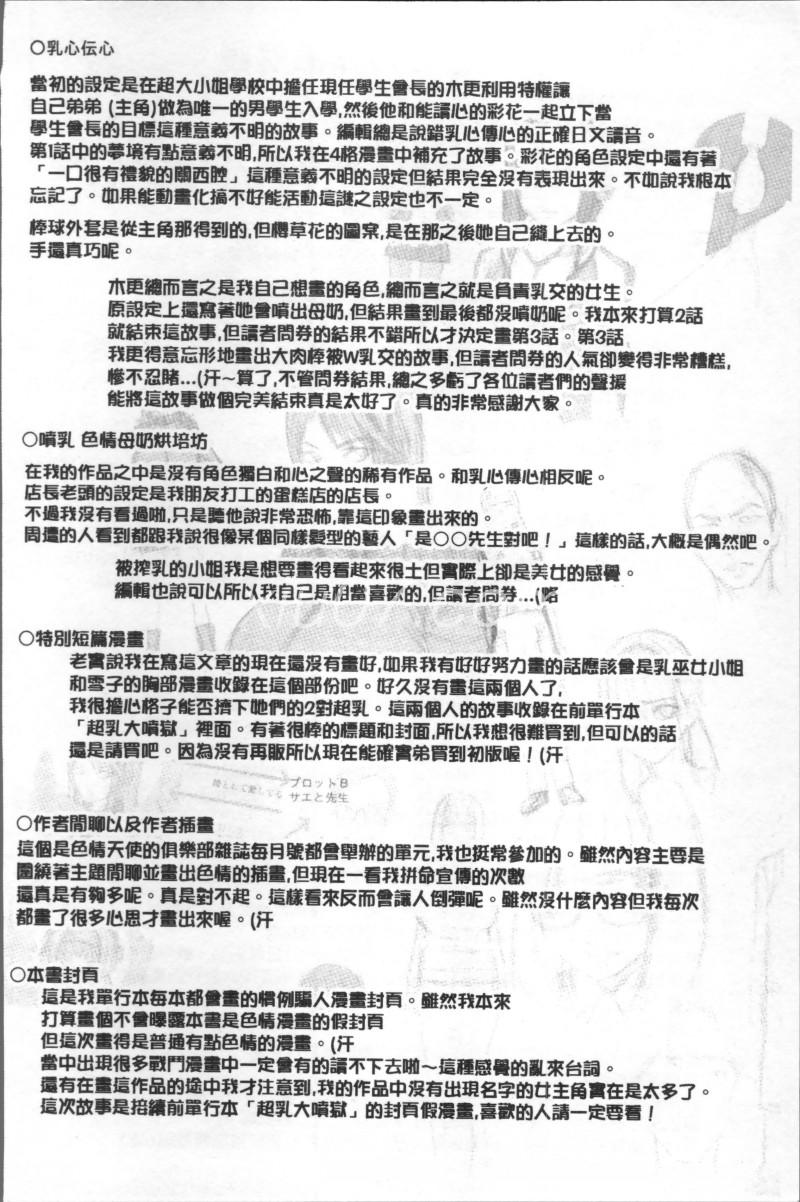 ○乳心伝心
當初的設定是在超大小姐學校中擔任現任學生會長的木更利用特權讓
自己弟弟 (主角)做為唯一的男學生入學,然後他和能讀心的彩花一起立下當
學生會長的目標這種意義不明的故事。編輯總是說錯乳心傳心的正確日文讀音。
第1話中的夢境有點意義不明,所以我在4格漫畫中補充了故事。彩花的角色設定中還有著
「一口很有禮貌的關西腔」這種意義不明的設定但結果完全沒有表現出來。不如說我根本
忘記了。如果能動畫化搞不好能活動這謎之設定也不一定。
棒球外套是從主角那得到的,但櫻草花的圖案,是在那之後她自己織上去的。
手還真巧呢。
木更總而言之是我自己想畫的角色,總而言之就是負責乳交的女生。
原設定上還寫著她會噴出母奶,但結果畫到最後都沒噴奶呢。我本來打算2話
就結束這故事,但讀者問券的結果不錯所以才決定畫第3話。第3話
我更得意忘形地畫出大肉棒被W乳交的故事,但讀者問券的人氣卻變得非常糟糕,
慘不忍賭...(汗～算了,不管問券結果,總之多虧了各位讀者們的聲援
能將這故事做個完美結束真是太好了。真的非常感謝大家。
○噴乳 色情母奶烘培坊
在我的作品之中是沒有角色獨白和心之聲的稀有作品。和乳心傳心相反呢。
店長老頭的設定是我朋友打工的蛋糕店的店長。
不過我沒有看過啦,只是聽他說非常恐怖,靠這印象畫出來的。
周遭的人看到都跟我說很像某個同樣髮型的藝人「是○○先生對吧！」這樣的話,大概是偶然吧。
被搾乳的小姐我是想要畫得看起來很土但實際上卻是美女的感覺。
編輯也說可以所以我自己是相當喜歡的,但讀者問券...(略
○特別短篇漫畫
老實說我在寫這文章的現在還沒有畫好,如果我有好好努力畫的話應該會是乳巫女小姐
和雪子的胸部漫畫收錄在這個部份吧。好久沒有畫這兩個人了,
我很擔心格子能否擠下她們的2對超乳。這兩個人的故事收錄在前單行本
「超乳大噴獄」裡面。有著很棒的標題和封面,所以我想很難買到,但可以的話
還是請買吧。因為沒有再販所以現在能確實弟買到初版喔！(汗
プロットB
サエと先生
○作者閒聊以及作者插畫
這個是色情天使的俱樂部雜誌每月號都會舉辦的單元,我也挺常參加的。雖然內容主要是
圍繞著主題閒聊並畫出色情的插畫,但現在一看我拼命宣傳的次數
還真是有夠多呢。真是對不起。這樣看來反而會讓人倒彈呢。雖然沒什麼內容但我每次
都畫了很多心思才畫出來喔。(汗
○本書封頁
這是我單行本每本都會畫的慣例騙人漫畫封頁。雖然我本來
打算畫個不會曝露本書是色情漫畫的假封頁
但這次畫得是普通有點色情的漫畫。(汗
當中出現很多戰鬥漫畫中一定會有的讀不下去啦～這種感覺的亂來台詞。
還有在畫這作品的途中我才注意到,我的作品中沒有出現名字的女主角實在是太多了。
這次故事是接續前單行本「超乳大噴獄」的封頁假漫畫,喜歡的人請一定要看！